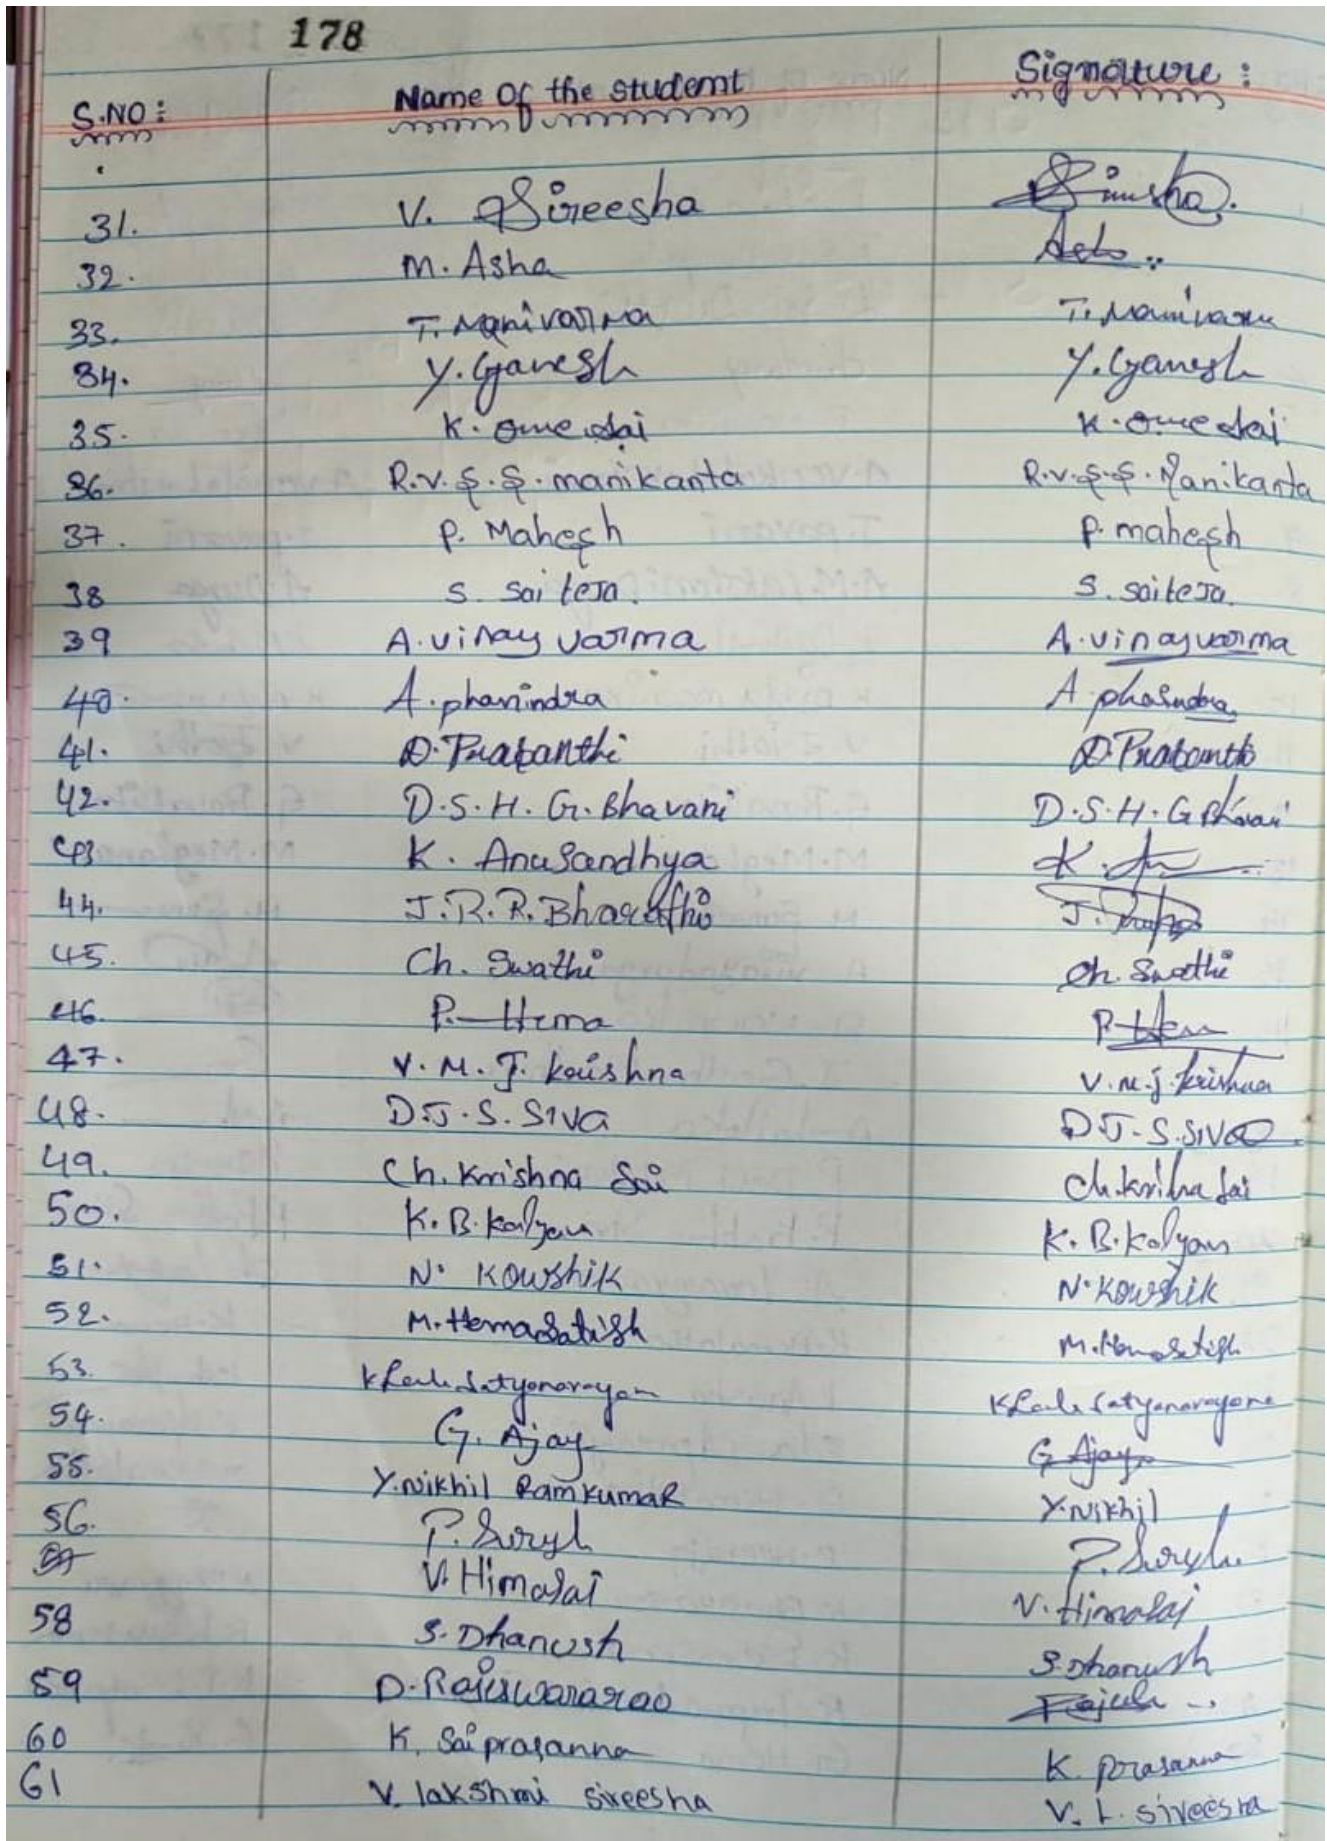 178
S.NO: Name Of the student Signature:
31. V. Sireesha Sireesha.
32. M. Asha Asha
33. T. Manivarma T. Manivarma
34. Y. Ganesh Y. Ganesh
35. K. Ome sai K. Ome sai
36. R.V.S.S. manikanta R.V.S.S. Manikanta
37. P. Mahesh P. mahesh
38 S. Sai teja. S. saiteja.
39 A. vinay varma A. vinayvarma
40. A. phanindra A. phanindra
41. D. Prabanthi D. Prabanthi
42. D.S.H. G. Bhavani D.S.H. G Bhavani
43 K. Anusandhya K.
44. J.R.R. Bharathi J.
45. Ch. Swathi Ch. Swathi
46. P. Hema P. Hema
47. V. M. J. Krishna V. M. J. Krishna
48. D.J.S. SIVA D.J.S. SIVA
49. Ch. Krishna Sai Ch. Kriha Sai
50. K. B. Kalyan K. B. Kalyan
51. N. KOWShiK N. KOWShiK
52. M. HemaSatish M. HemaSatish
53. Satyanarayan Satyanarayana
54. G. Ajay G Ajay
55. Y. Nikhil RamkumaR Y. Nikhil
56. P. Suryh P. Suryh.
57 V. Himasai V. Himasai
58 S. Dhanush S. Dhanush
59 D. Rajeswararao
60 K. Sai prasanna K. prasanna
61 V. lakshmi sireesha V. L. sireesha